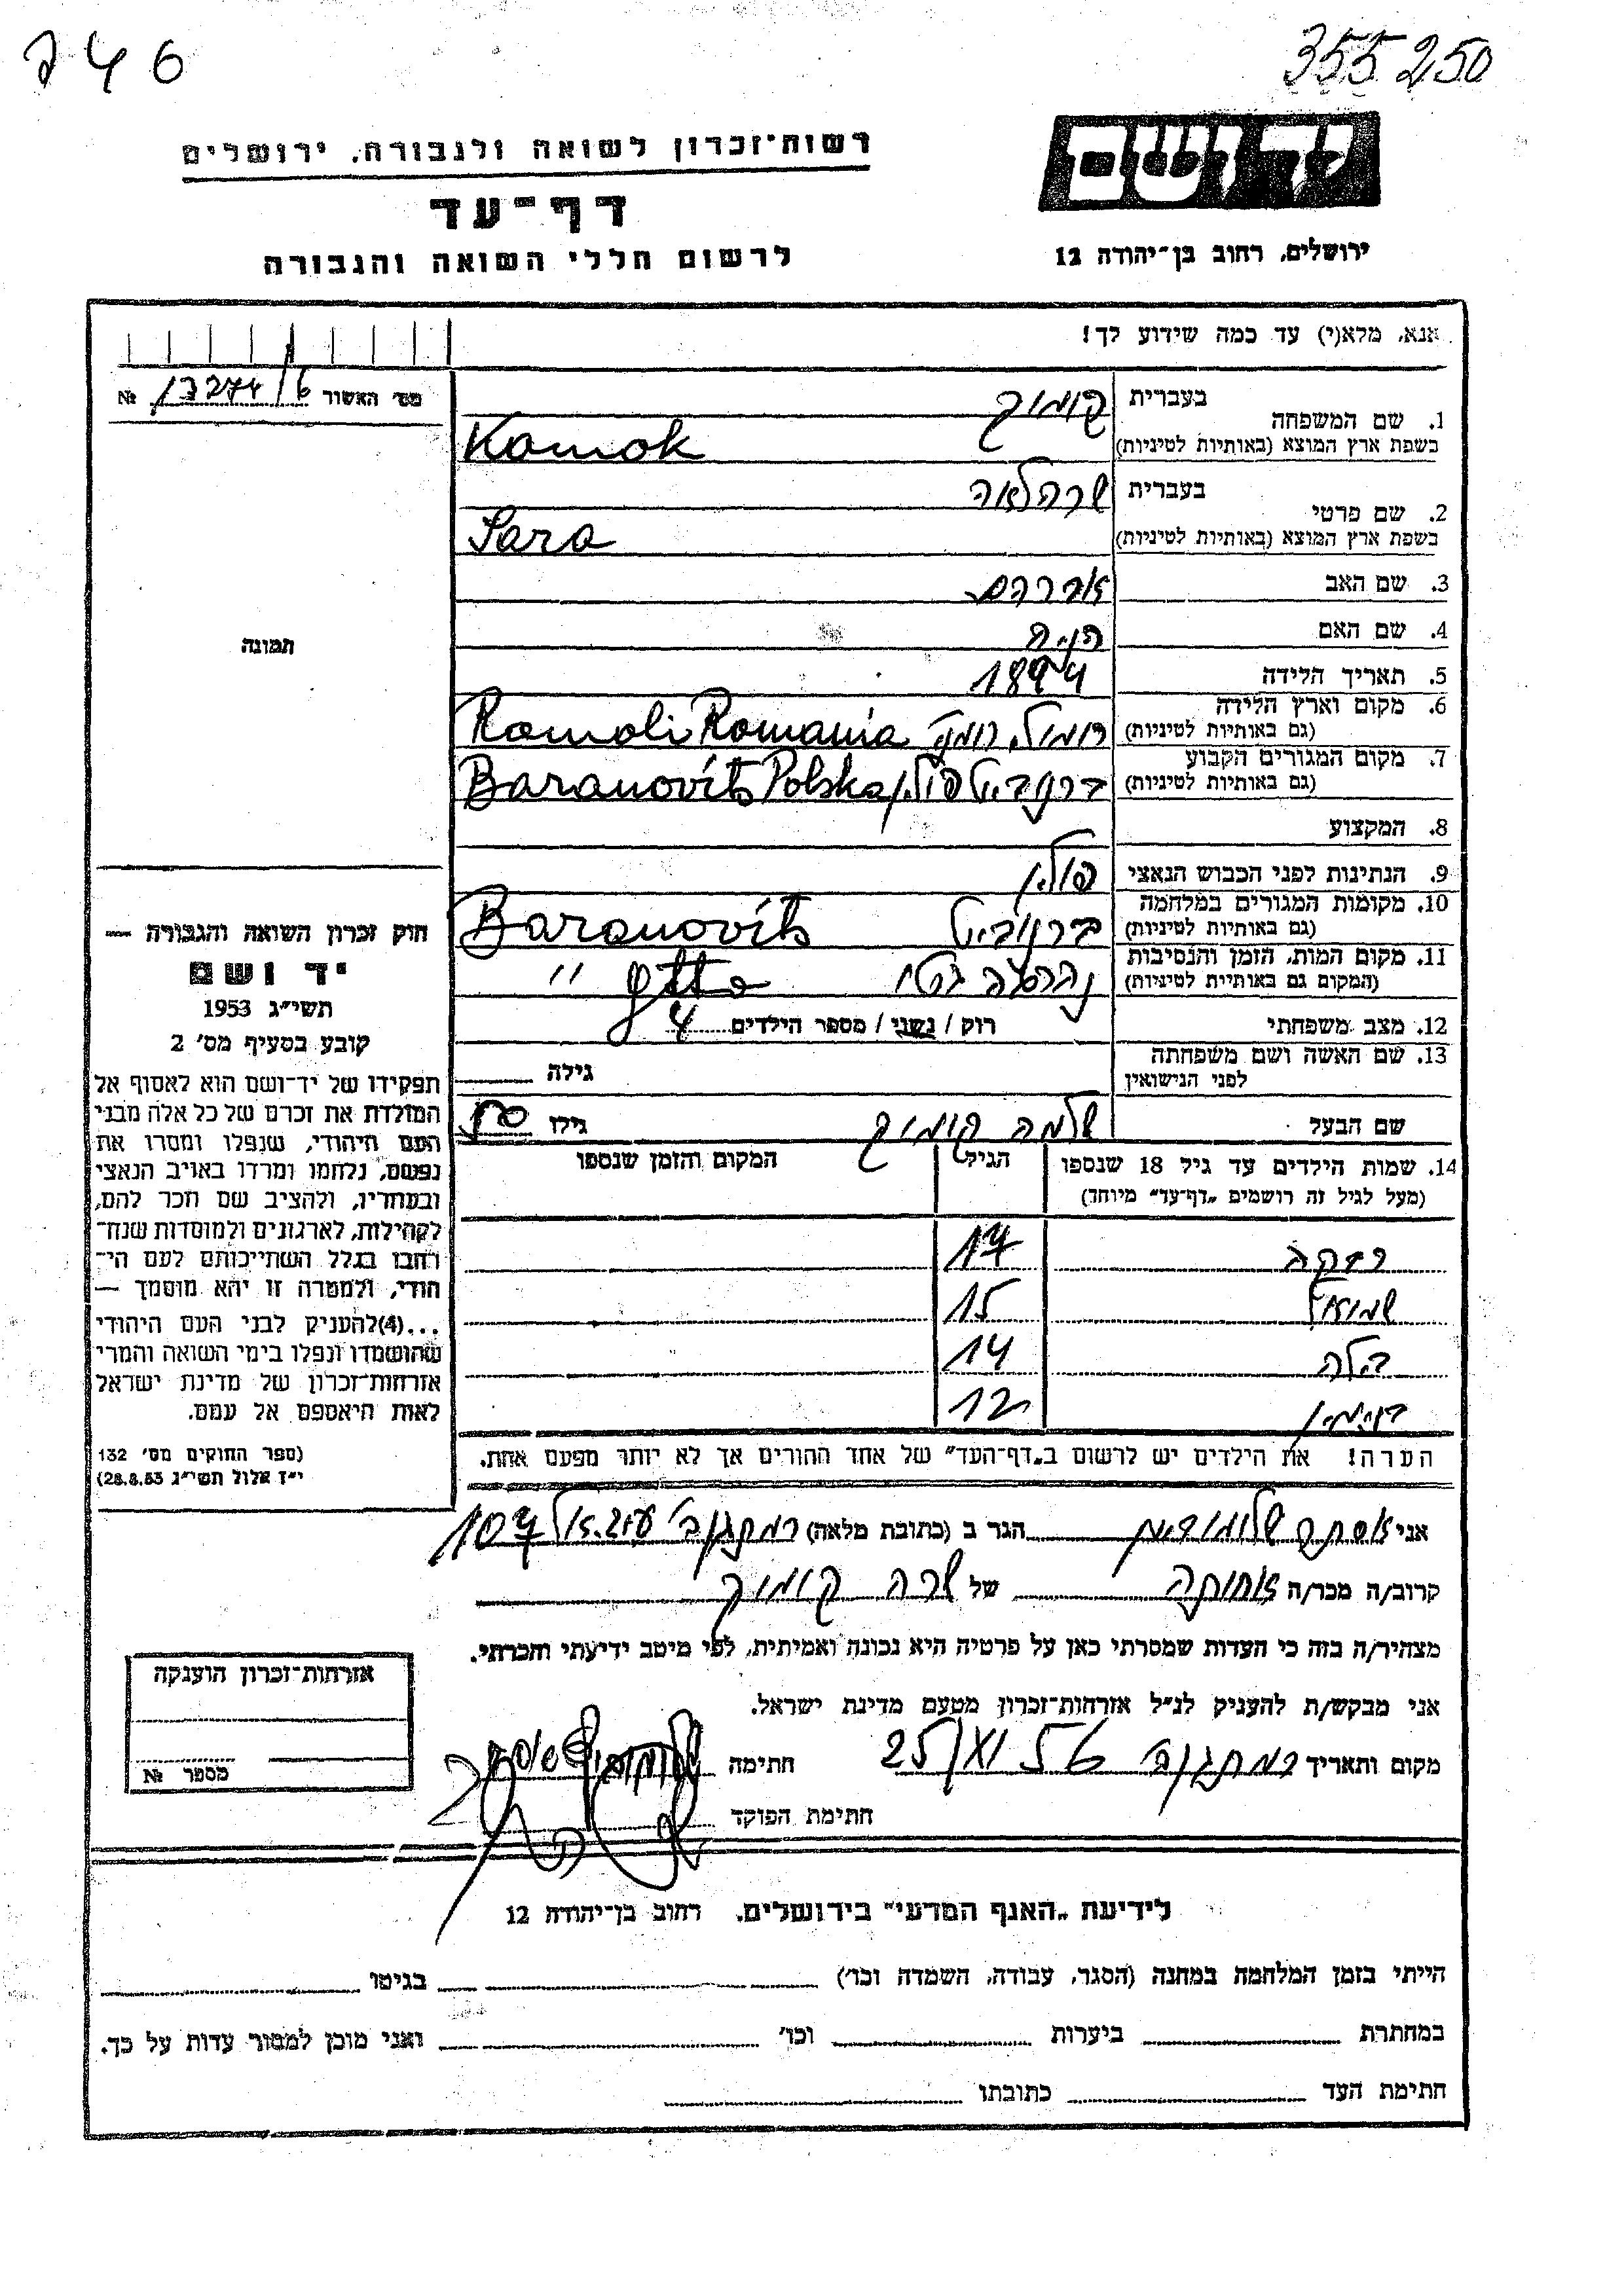 746
355250
רשות־זכרון לשואה ולגבורה, ירושלים
יד ושם
דף־עד
לרשום חללי השואה והגבורה
ירושלים, רחוב בן־יהודה 12
אנא, מלא(י) עד כמה שידוע לך!
מס׳ האשור 13274/6 №
1. שם המשפחה בעברית קומוק
בשפת ארץ המוצא (באותיות לטיניות) Komok
2. שם פרטי בעברית שרה לאה
בשפת ארץ המוצא (באותיות לטיניות) Sara
3. שם האב אברהם
4. שם האם
5. תאריך הלידה 1894
6. מקום וארץ הלידה
(גם באותיות לטיניות) Romania
7. מקום המגורים הקבוע
(גם באותיות לטיניות) פולין Baranovits Polska
8. המקצוע
9. הנתינות לפני הכבוש הנאצי פולין
10. מקומות המגורים במלחמה
(גם באותיות לטיניות) Baranovits
11. מקום המות, הזמן והנסיבות
(המקום גם באותיות לטיניות) נהרגה גטו ״
12. מצב משפחתי רוק / נשוי / מספר הילדים 4
13. שם האשה ושם משפחתה
לפני הנישואין גילה
שם הבעל שלמה קומוק גילו 50
14. שמות הילדים עד גיל 18 שנספו הגיל המקום והזמן שנספו
(מעל לגיל זה רושמים „דף־עד״ מיוחד)
רבקה 17
שמואל 15
בלה 14
בנימין 12
הערה! את הילדים יש לרשום ב„דף־העד״ של אחד ההורים אך לא יותר מפעם אחת.
תמונה
חוק זכרון השואה והגבורה —
יד ושם
תשי״ג 1953
קובע בסעיף מס׳ 2
תפקידו של יד־ושם הוא לאסוף אל
המולדת את זכרם של כל אלה מבני
העם היהודי, שנפלו ומסרו את
נפשם, נלחמו ומרדו באויב הנאצי
ובעוזריו, ולהציב שם וזכר להם,
לקהילות, לארגונים ולמוסדות שנח־
רבו בגלל השתייכותם לעם הי־
הודי, ולמטרה זו יהא מוסמך —
...(4) להעניק לבני העם היהודי
שהושמדו ונפלו בימי השואה והמרי
אזרחות־זכרון של מדינת ישראל
לאות היאספם אל עמם.
(ספר החוקים מס׳ 132
י״ז אלול תשי״ג 28.8.53)
אני אסתר הגר ב (כתובת מלאה) רמת גן 107
קרוב/ה מכר/ה של שרה קומוק
מצהיר/ה בזה כי העדות שמסרתי כאן על פרטיה היא נכונה ואמיתית, לפי מיטב ידיעתי והכרתי.
אני מבקש/ת להעניק לנ״ל אזרחות־זכרון מטעם מדינת ישראל.
מקום ותאריך רמת גן 25/XI 56 חתימה
חתימת הפוקד
אזרחות־זכרון הוענקה
מספר №
לידיעת „האגף המדעי״ בירושלים, רחוב בן־יהודה 12
הייתי בזמן המלחמה במחנה (הסגר, עבודה, השמדה וכו׳) בגיטו
במחתרת ביערות וכו׳ ואני מוכן למסור עדות על כך.
חתימת העד כתובתו